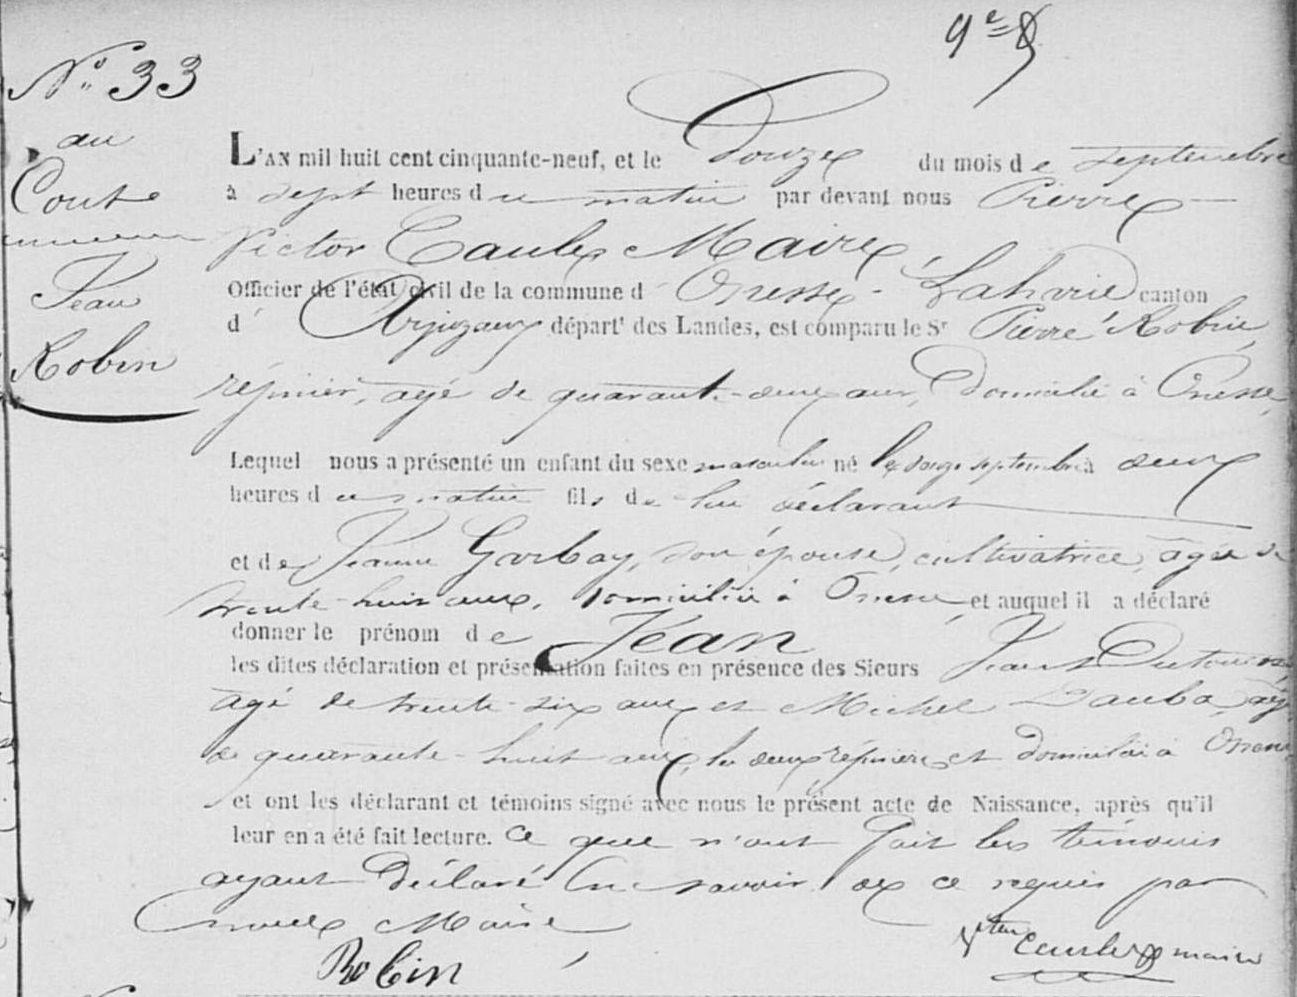 9e
No 33
au
Conte
Jean
Robin
L'AN mil huit cent cinquante-neuf, et le Douze du mois de septembre
à sept heures du matin par devant nous Pierre
Victor Caule Maire,
Officier de l'état civil de la commune d' Onesse - Laharie canton
d' Arjuzanx départt des Landes, est comparu le Sr Pierre Robin,
résinier, agé de quarante-deux ans, Domicilié à Onesse,
Lequel nous a présenté un enfant du sexe masculin né le douze septembre à deux
heures du matin fils de lui déclarant
et de Jeanne Garbay, son épouse, cultivatrice, agée de
trente-huit ans, domiciliée à Onesse et auquel il a déclaré
donner le prénom de Jean
les dites déclaration et présentation faites en présence des Sieurs Jean
agé de trente-six ans et Michel Dauba, agé
de quarante-huit ans, les deux résiniers et domiciliés à Onesse
et ont les déclarant et témoins signé avec nous le présent acte de Naissance, après qu'il
leur en a été fait lecture. Ce que n'ont fait les témoins
ayant Déclaré ne savoir de ce requis par
nous Maire
Robin
Caule maire